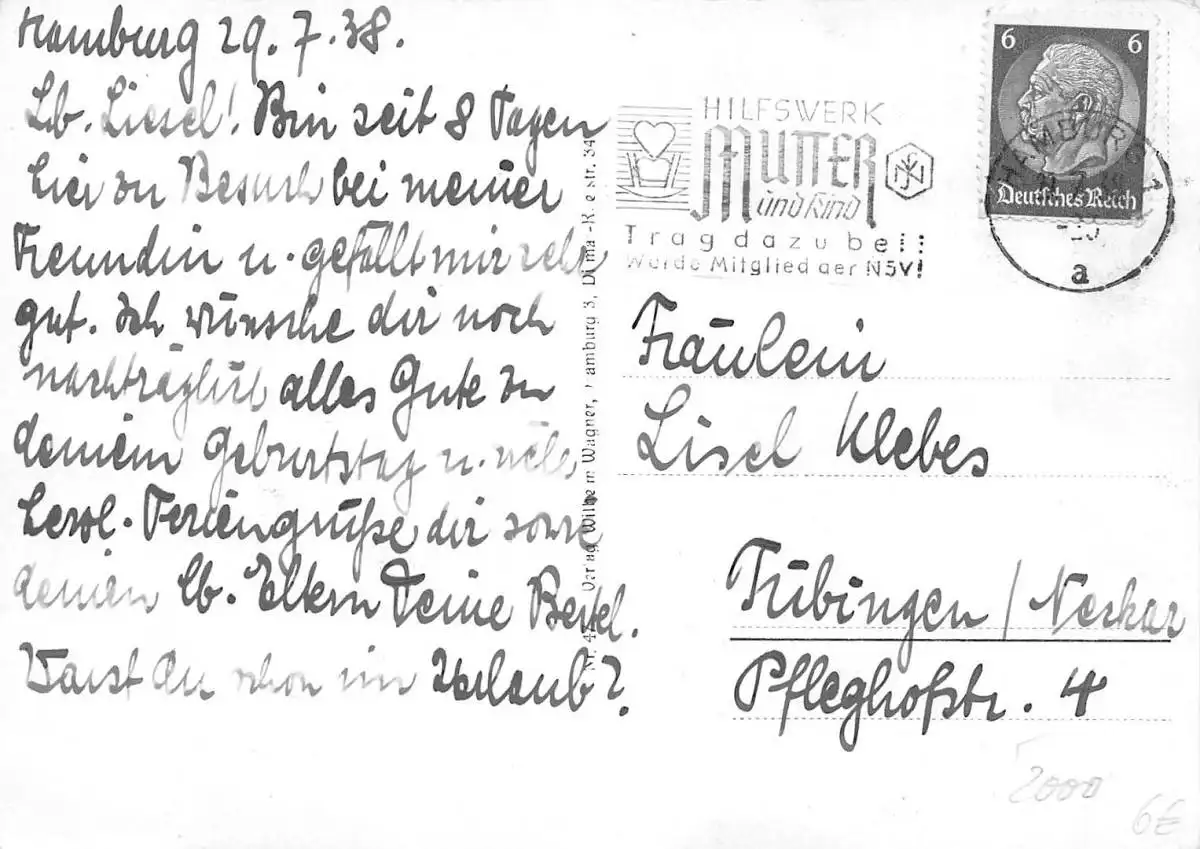 Hamburg 29.7.38.
Lb. Liesel! Bin seit 8 Tagen
hier zu Besuch bei meiner
Freundin u. gefällt mir sehr
gut. Ich wünsche dir noch
nachträglich alles Gute zu
deinem Geburtstag u. viele
herzl. Feriengrüße dir sowie
deinen lb. Eltern Deine Bertel.
Warst du schon im Urlaub?
HILFSWERK
MUTTER
und Kind
Trag dazu bei:
Werde Mitglied der NSV!
6 6
Deutsches Reich
HAMBURG 1
a
Verlag Wilhelm Wagner, Hamburg 3,
Fräulein
Lisel Klebes
Tübingen / Neckar
Pfleghofstr. 4
2000
6€